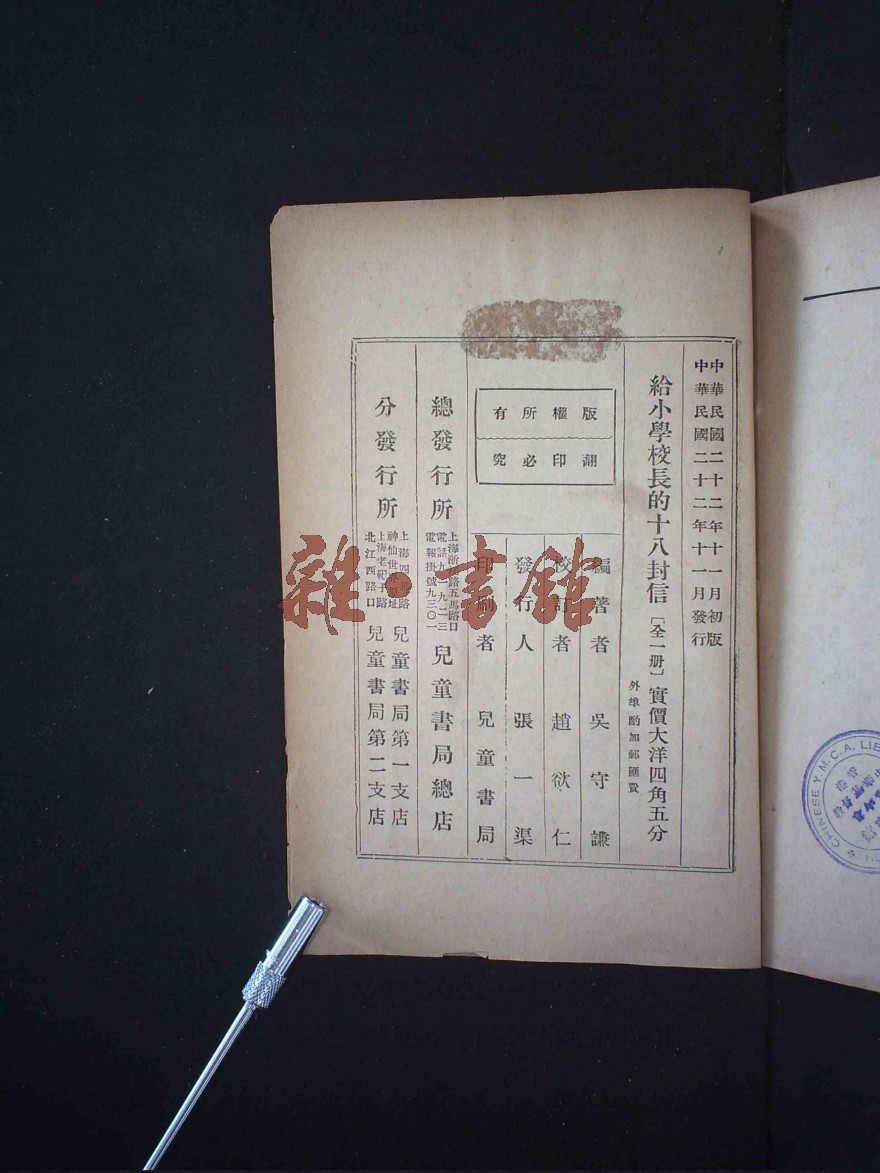 中華民國二十二年十一月初版
中華民國二十二年十一月發行
給小學校長的十八封信［全一册］實價大洋四角五分
外埠酌加郵匯費
版權所有
翻印必究
編著者 吳守謙
校訂者 趙欲仁
發行人 張一渠
印刷者 兒童書局
總發行所
上海浙江路五馬路口
電話九一九二三
電報掛號九三〇一
兒童書局總店
分發行所
上海四馬路
神仙世界址
兒童書局第一支店
上海老靶子路
北江西路口
兒童書局第二支店
雜·書館
CHINESE Y.M.C.A. LIB